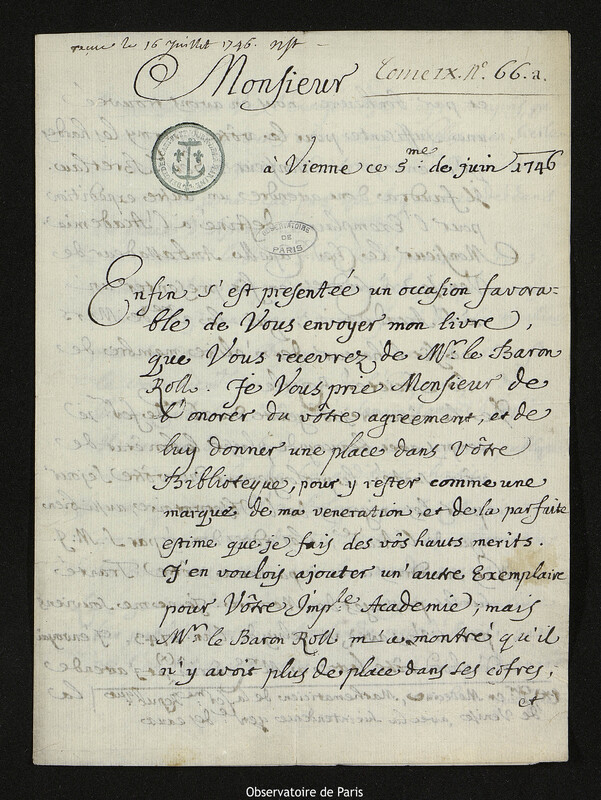 reçue le 16 Juillet 1746. nst
Monsieur
Tome IX. N.º 66. a.
à Vienne ce 5.me de juin 1746
OBSERVATOIRE
DE
PARIS
Enfin s'est presenteé un occasion favora=
ble de Vous envoyer mon livre,
que Vous recevrez de Mr. le Baron
Roll. Je Vous prie Monsieur de
l'onorer du vôtre agreement, et de
luy donner une place dans Vôtre
Biblioteque, pour y rester comme une
marque de ma veneration et de la parfaite
estime que je fais des vôs hauts merits.
J'en voulois ajouter un'autre Exemplaire
pour Vôtre Imp.le Academie, mais
Mr. le Baron Roll m'a montré qu'il
n'y avoit plus de place dans ses cofres,
et
Observatoire de Paris